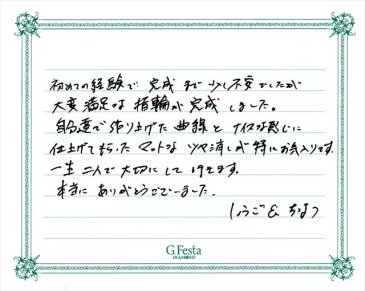 初めての経験で、完成まで少し不安でしたが
大変満足な指輪が完成しました。
自分達で作り上げた曲線とナイスな感じに
仕上げてもらったマットなツヤ消しが特にお気入りです。
一生二人で大切にして行きます。
本当にありがとうございました。
しょうご & ちなつ
G.Festa
DIAMOND